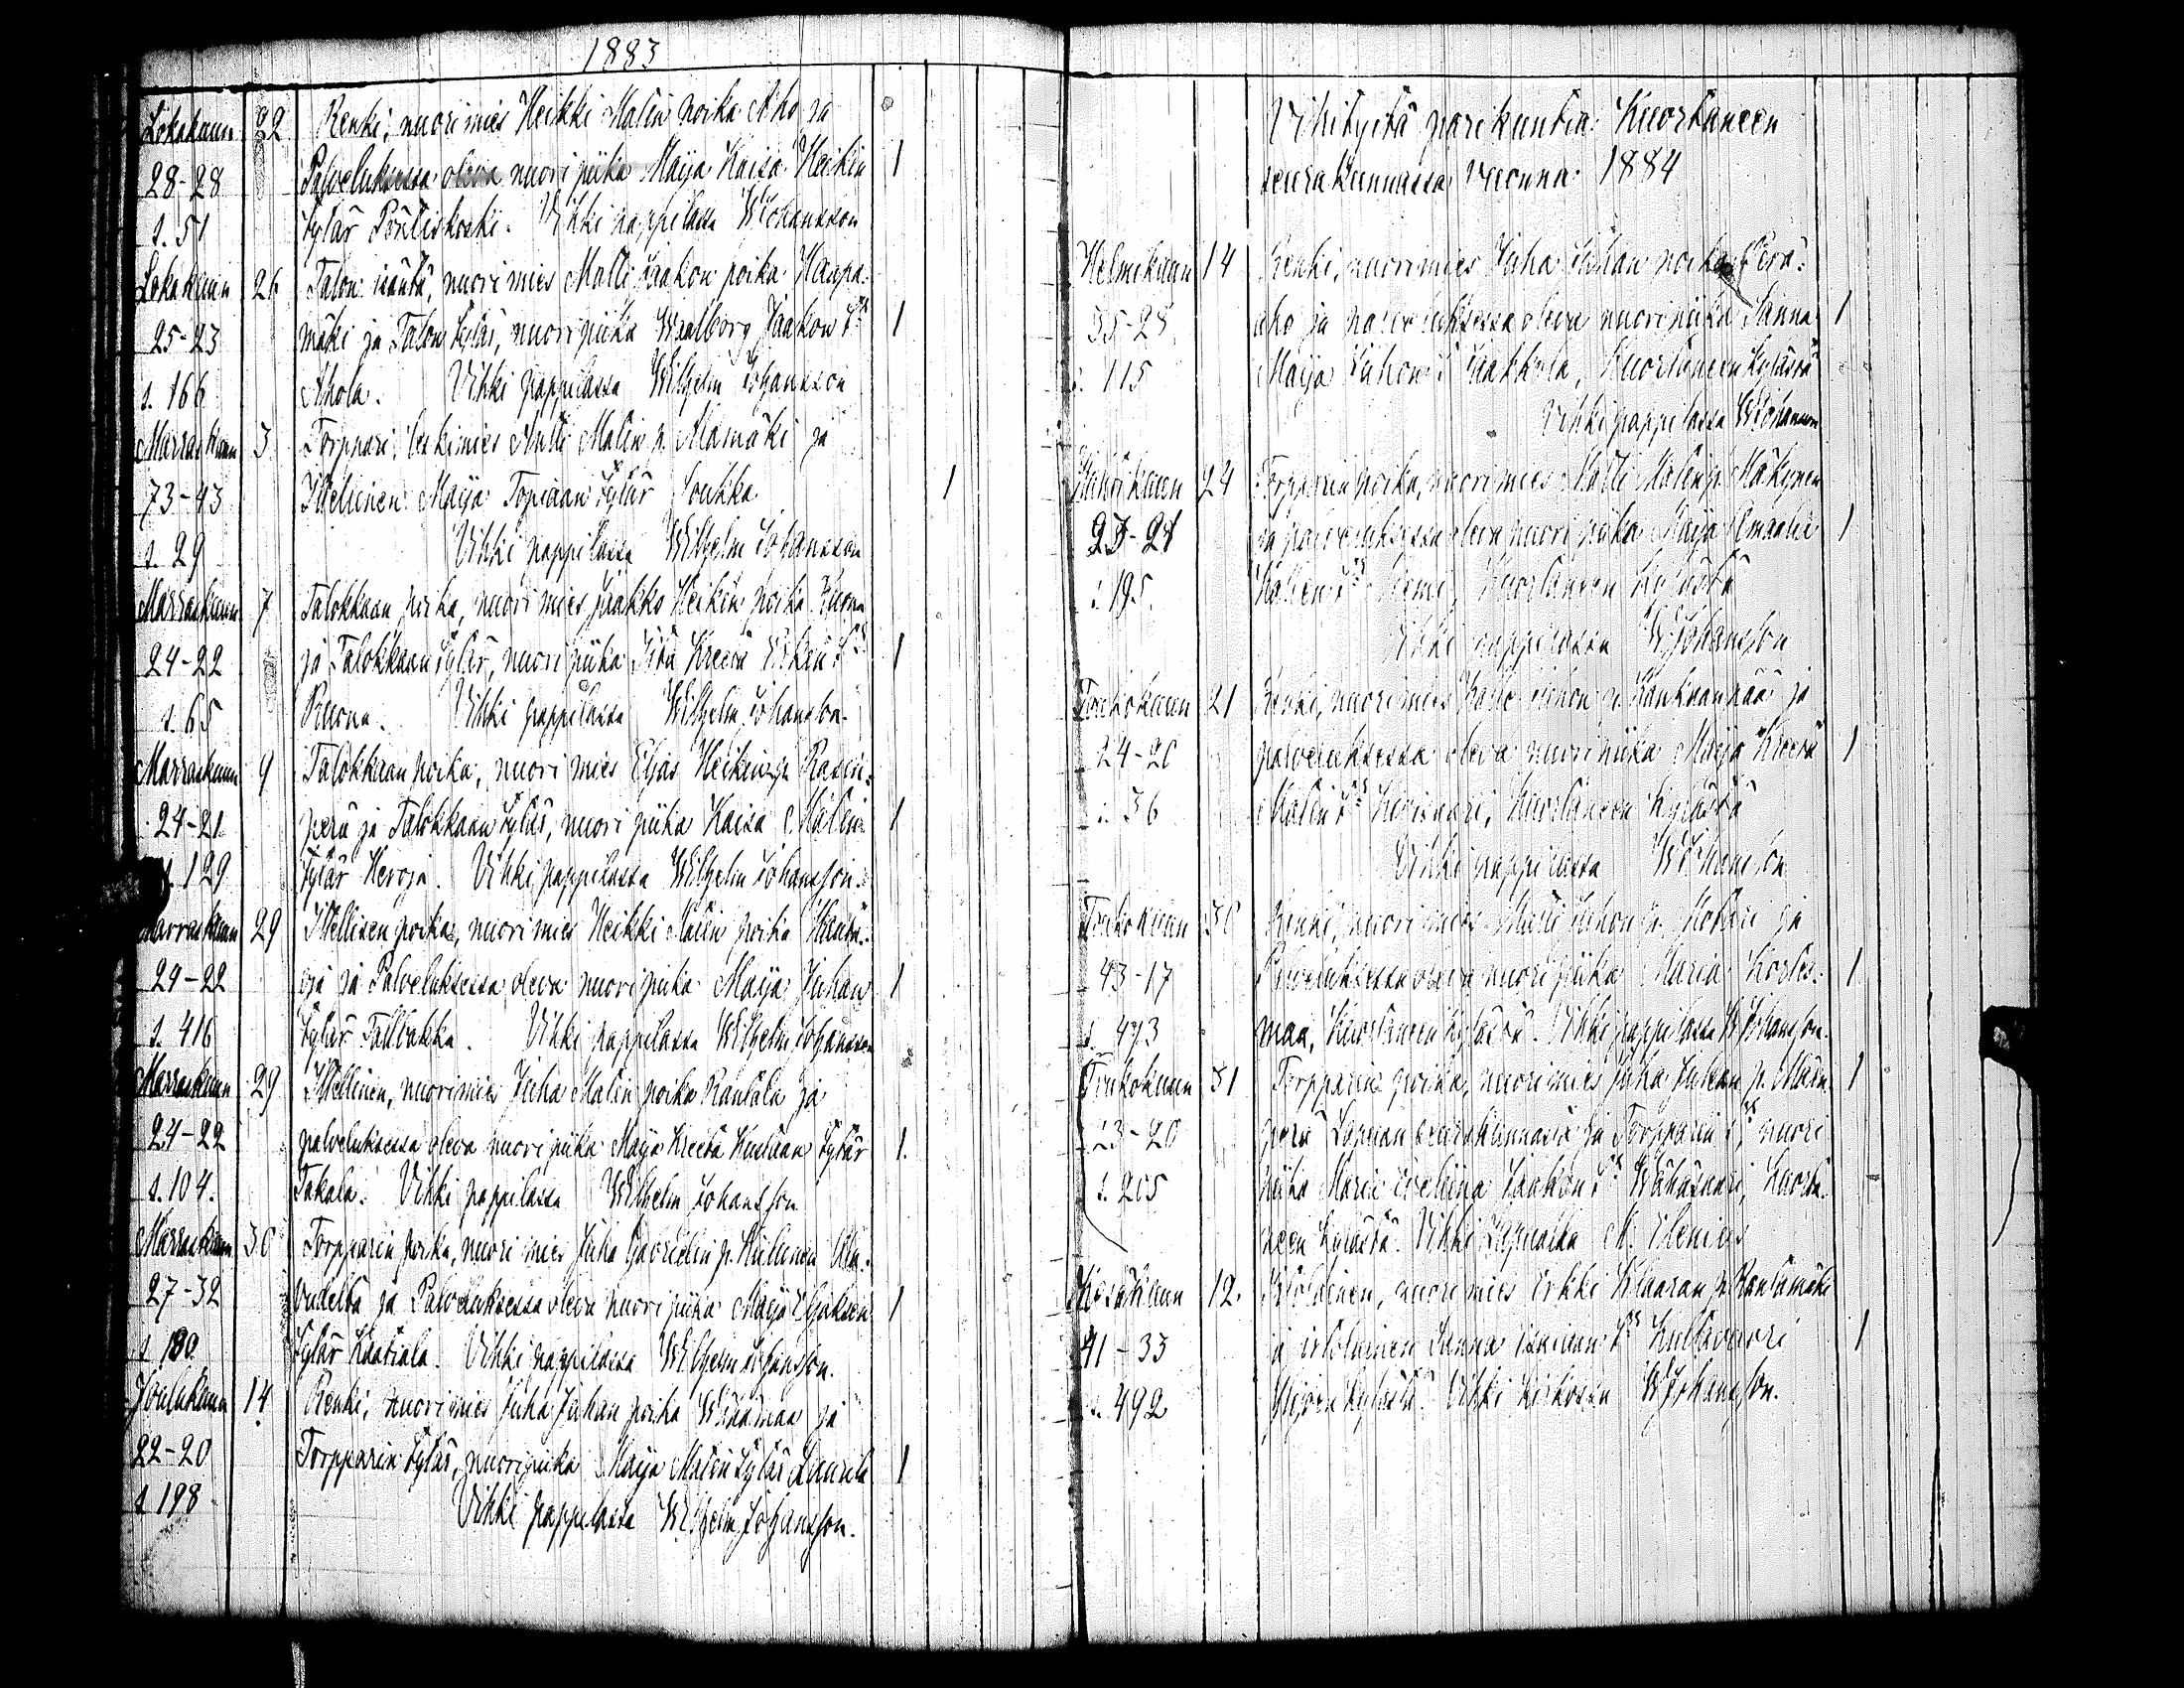 1883
Lokakuun 22 Renki, nuori mies Heikki Matin poika Aho ja
28-28 Palveluksessa oleva nuori piika Maija Kaisa Heikin 1
s. 51 tytär Pöntiskoski. Vihki pappilassa W Johansson
Lokakuun 26 Talon isäntä, nuori mies Matti Jaakon poika Haapa-
25-23 mäki ja Talon tytär, nuori piika Waalborg Jaakon t:r 1
s. 166 Ahola. Vihki pappilassa Wilhelm Johansson
Marraskuun 3 Torppari, leskimies Antti Matin p. Mamäki ja
73-43 Itsellinen Maija Topiaan tytär Soukka 1
s. 29 Vihki pappilassa Wilhelm Johansson
Marraskuun 7 Talokkaan poika, nuori mies Jaakko Heikin poika Ruona
24-22 ja Talokkaan tytär, nuori piika Kreeta Erkin t:r 1
s. 65 Ruona. Vihki pappilassa Wilhelm Johansson.
Marraskuun 9 Talokkaan poika, nuori mies Eljas Heikin p. Rasin-
24-21 perä ja Talokkaan tytär, nuori piika Kaisa Matin 1
s. 129 tytär Heroja. Vihki pappilassa Wilhelm Johansson.
Marraskuun 29 Itsellisen poika, nuori mies Heikki Matin poika
29-22 oja ja Palveluksessa oleva nuori piika Maija Juhan 1
s. 416 tytär Fallbakka. Vihki pappilassa Wilhelm Johansson
Marraskuun 29 Itsellinen, nuori mies Juha Matin poika Rantala ja
24-22 palveluksessa oleva nuori piika Maija Kreeta Kustaan tytär 1.
s. 104. Takala. Vihki pappilassa Wilhelm Johansson
Marraskuun 30 Torpparin poika, nuori mies Juha Gavrielin p. Ala-
27-32 vudelta ja Palveluksessa oleva nuori piika Maija Eljaksen 1
s. 180 tytär Kaatiala. Vihki pappilassa Wilhelm Johansson.
Joulukuun 14 Renki, nuori mies Juha Juhan poika Wiitamaa ja
22-20 Torpparin tytär, nuori piika Maija Matin tytär Laurila 1
s 198 Vihki pappilassa Wilhelm Johansson.
Vihityitä parikuntia Kuortaneen
seurakunnassa vuonna 1884
Helmikuun 14 Renki, nuori mies Juha Juhan poika Perä-
35-25 aho ja palveluksessa oleva nuori piika Sanna 1
s. 115 Maija Juhon t Jaakkola, Kuortaneen kylästä
Vihki pappilassa W Johansson
Huhtikuun 24 Torpparin poika, nuori mies Matti Matin p. Mäkynen
23-21 ja palveluksessa oleva nuori piika Maija Amaalia 1
s. 195. t:r Niemi, Kuortaneen kylästä
Vihki pappilassa W. Johansson
Toukokuun 21 Renki, nuori mies Kalle Juhon p. Kankaanpää ja
24-20 palveluksessa oleva nuori piika Maija Kreeta 1
s. 36 Matin t:r, Kuortaneen kylästä
Vihki pappilassa W Johansson
Toukokuun 30 Renki, nuori mies Matti Juhon p. ja
43-17 Palveluksessa oleva nuori piika Maria Kortes- 1
s. 493 maa, Kuortaneen kylästä. Vihki pappilassa W Johansson.
Toukokuun 31 Torpparin poika, nuori mies Juha Juhan p. 1
23-20 perä Lapuan seurakunnasta ja Torpparin t:r, nuori
s. 205 piika Maria Eveliina Jaakon t:r Wähäsaari, Kuorta-
neen kylästä. Vihki Lapualla
Kesäkuun 12. Itsellinen, nuori mies Erkki p. Rantamäki
41-33 ja itsellinen Sanna t:r Kultavuori 1
s. 492 Mäyrin kylästä. Vihki kirkossa W Johansson.